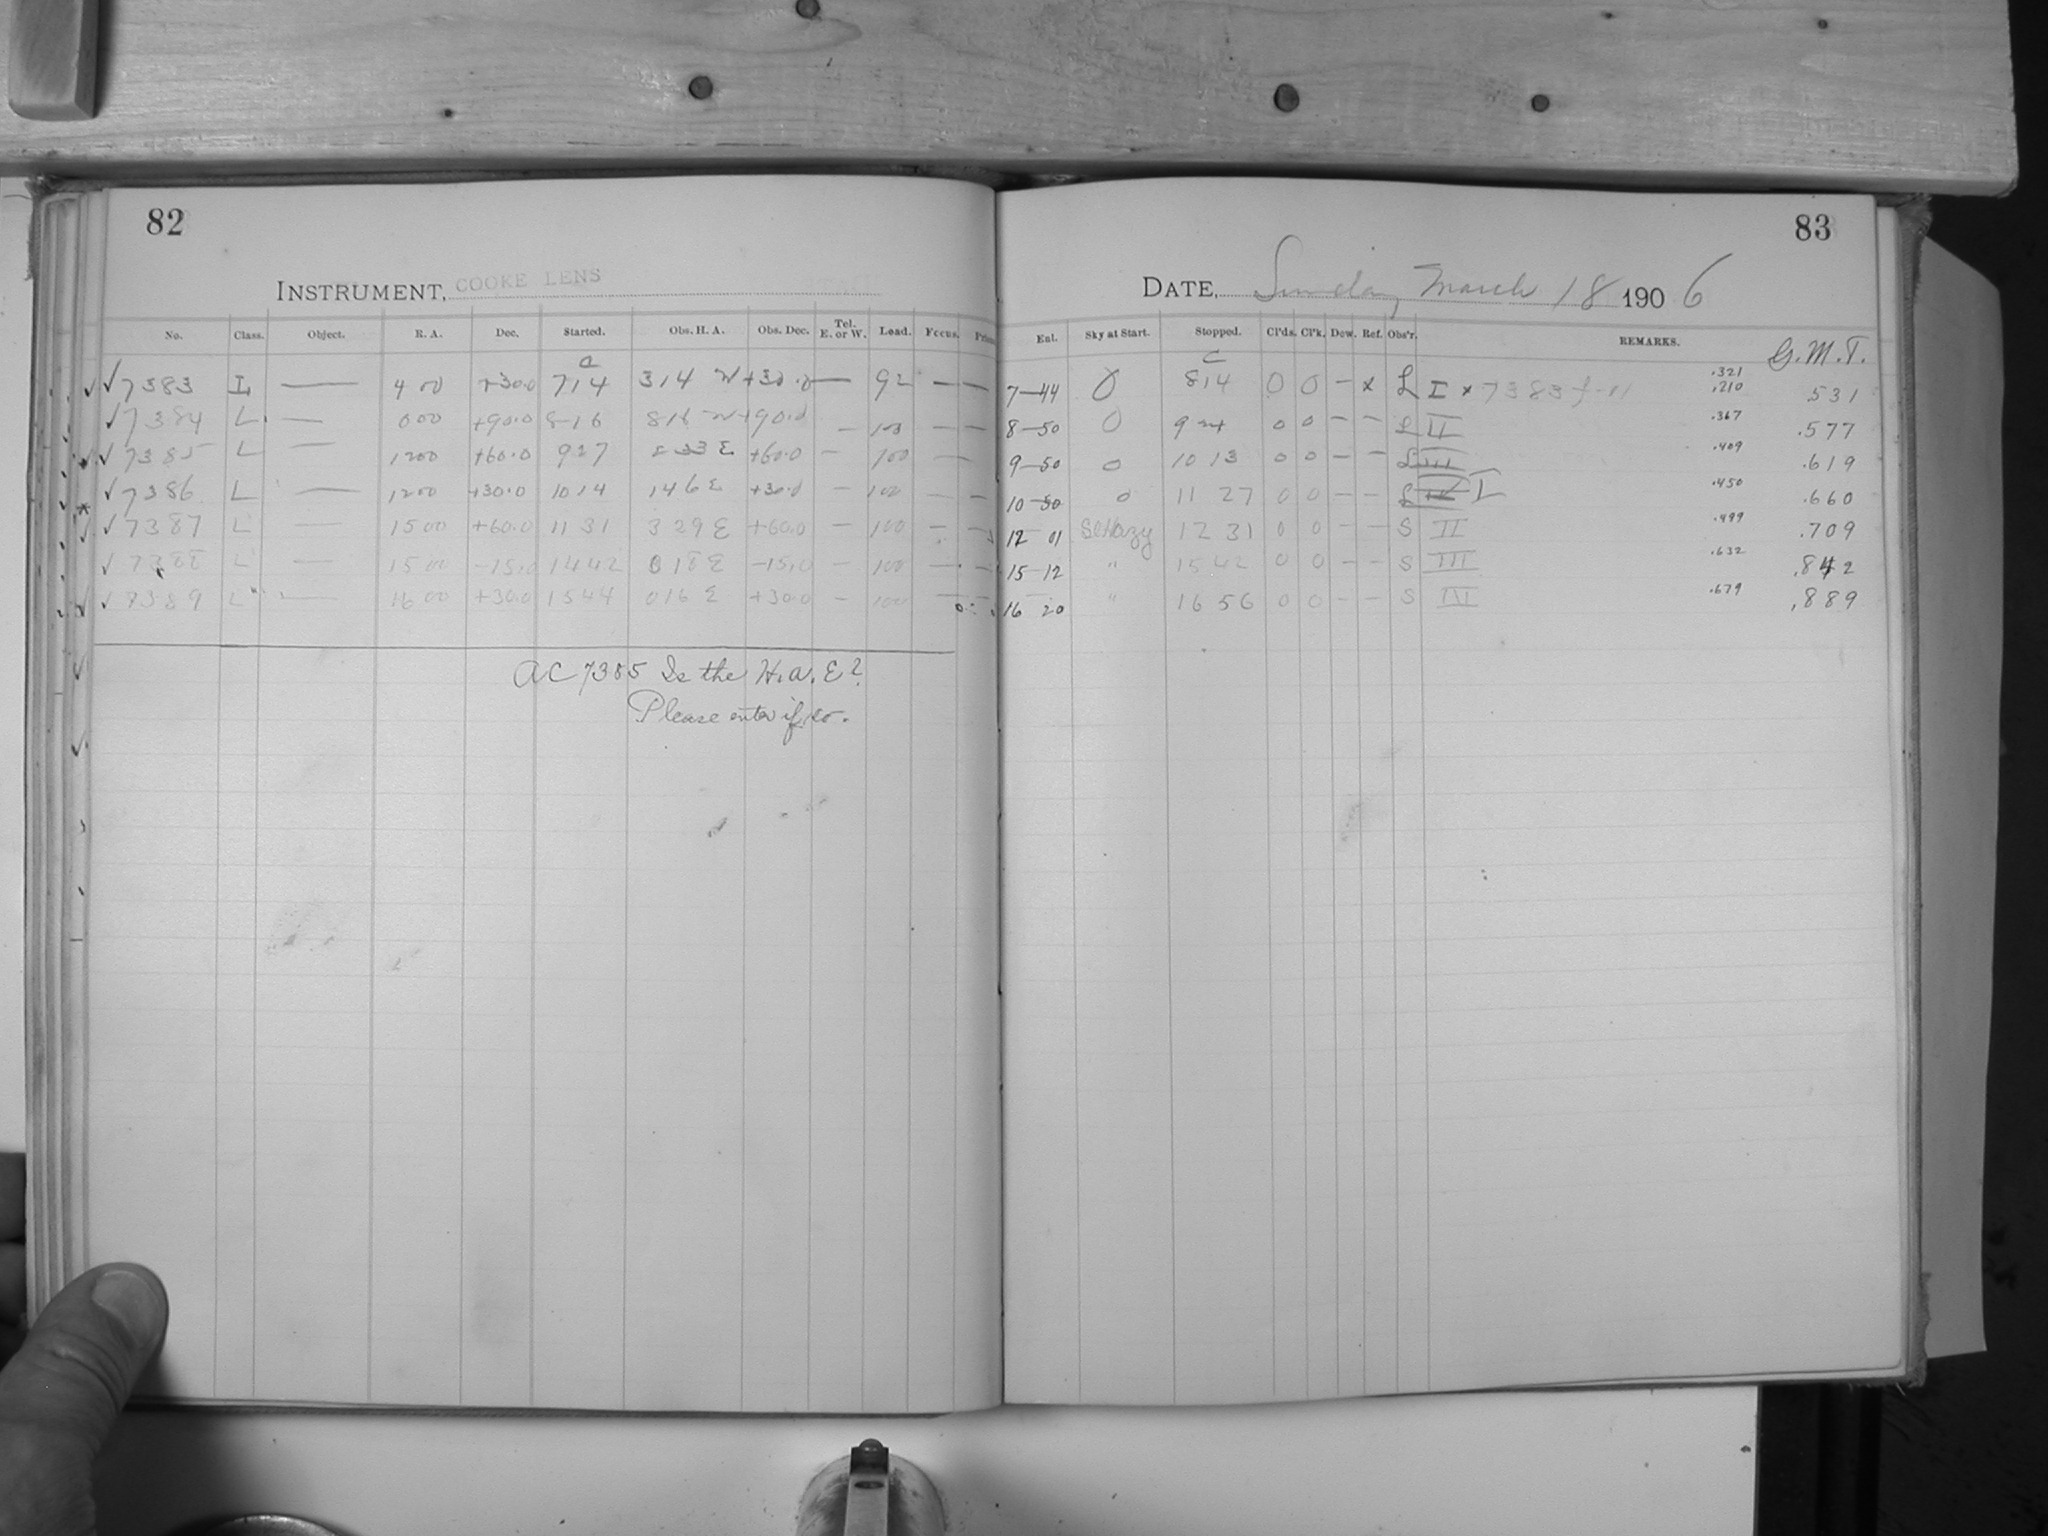 82
INSTRUMENT, COOKE LENS
No. Class. Object. R. A. Dec. Started. Obs. H. A. Obs. Dec. Tel. E. or W. Load. Focus.
C
✓✓ 7383 L — 4 00 +30.0 7 14 3 14 W +30.0 — 92 — —
✓ 7384 L — 0 00 +90.0 8-16 8 16 W +90.0 — 103 — —
✓ 7385 L — 12 00 +60.0 9 27 2 33 E +60.0 — 100 —
✓ 7386 L — 12 00 +30.0 10 14 1 46 E +30.0 — 100 — —
✓ 7387 L — 15 00 +60.0 11 31 3 29 E +60.0 — 100 — —
✓ 7388 L — 15 00 -15.0 14 42 0 18 E -15.0 — 100 — —
✓ 7389 L — 16 00 +30.0 15 44 0 16 E +30.0 — 100 —
AC 7385 Is the H.A. E?
Please enter if so.
83
DATE, Sunday March 18 1906
Ent. Sky at Start. Stopped. Cl'ds. Cl'k. Dew. Ref. Obs'r. REMARKS. G.M.T.
C
7-44 0 8 14 0 0 — x L I x 7383 .321 .210 .531
8-50 0 9 24 0 0 — — L II .367 .577
9-50 0 10 13 0 0 — — L III .409 .619
10-50 0 11 27 0 0 — — L I .450 .660
12 01 Sl Hazy 12 31 0 0 — — S II .499 .709
15-12 " 15 42 0 0 — — S III .632 .842
16 20 " 16 56 0 0 — — S IV .679 .889